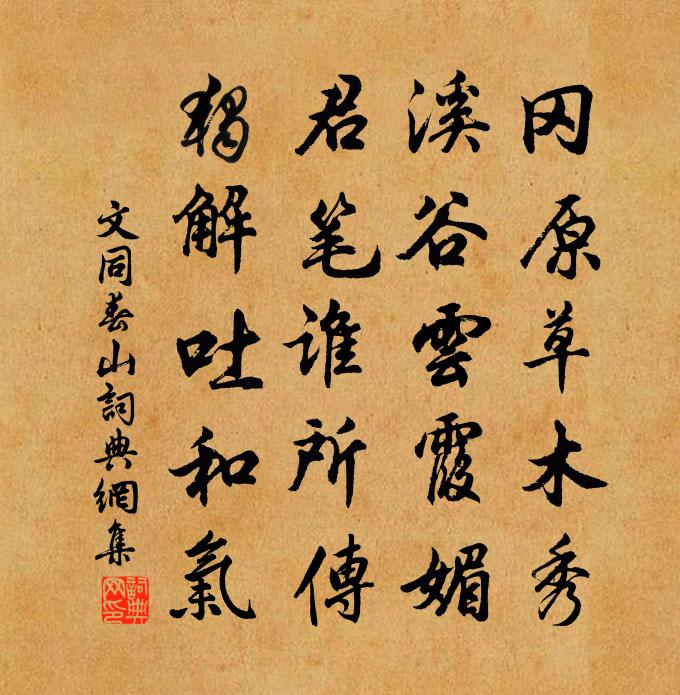 冈原草木秀
溪谷雲霞媚
君笔谁所傳
獨解吐和氣
文同春山詞典網集
詞典网印